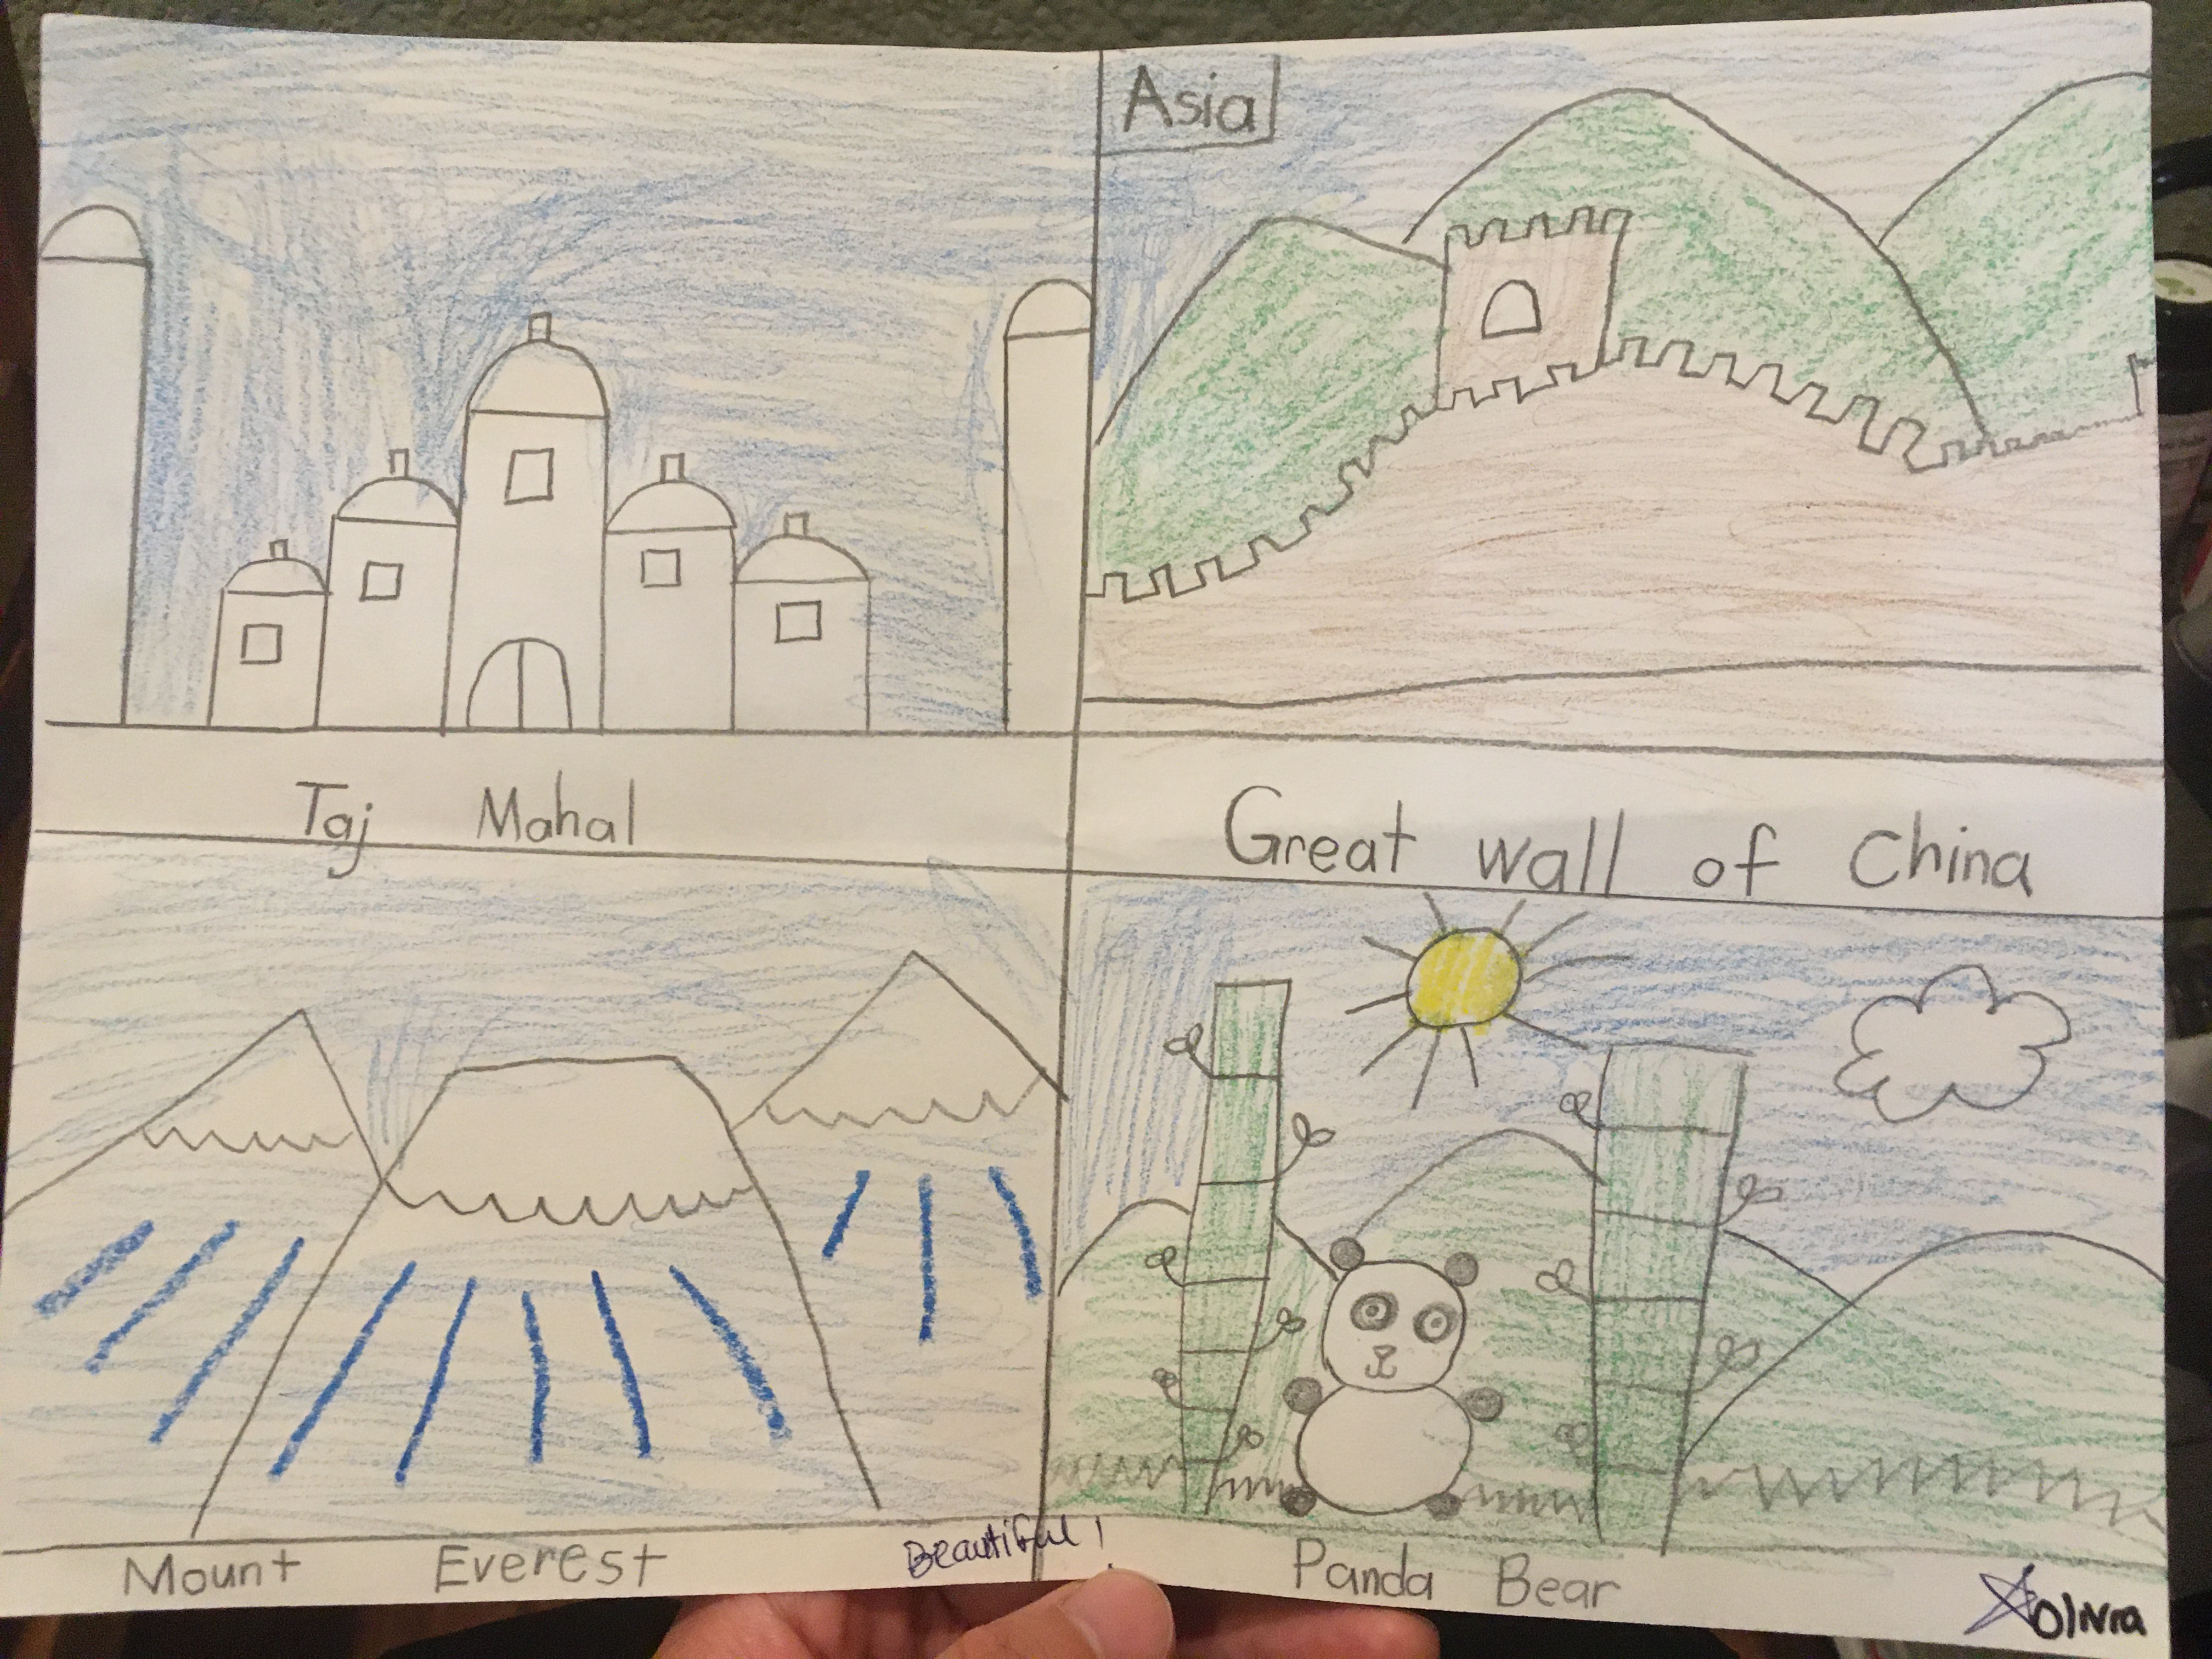 Asia
Taj Mahal
Great Wall of China
Mount Everest
Beautiful!
Panda Bear
Olivia